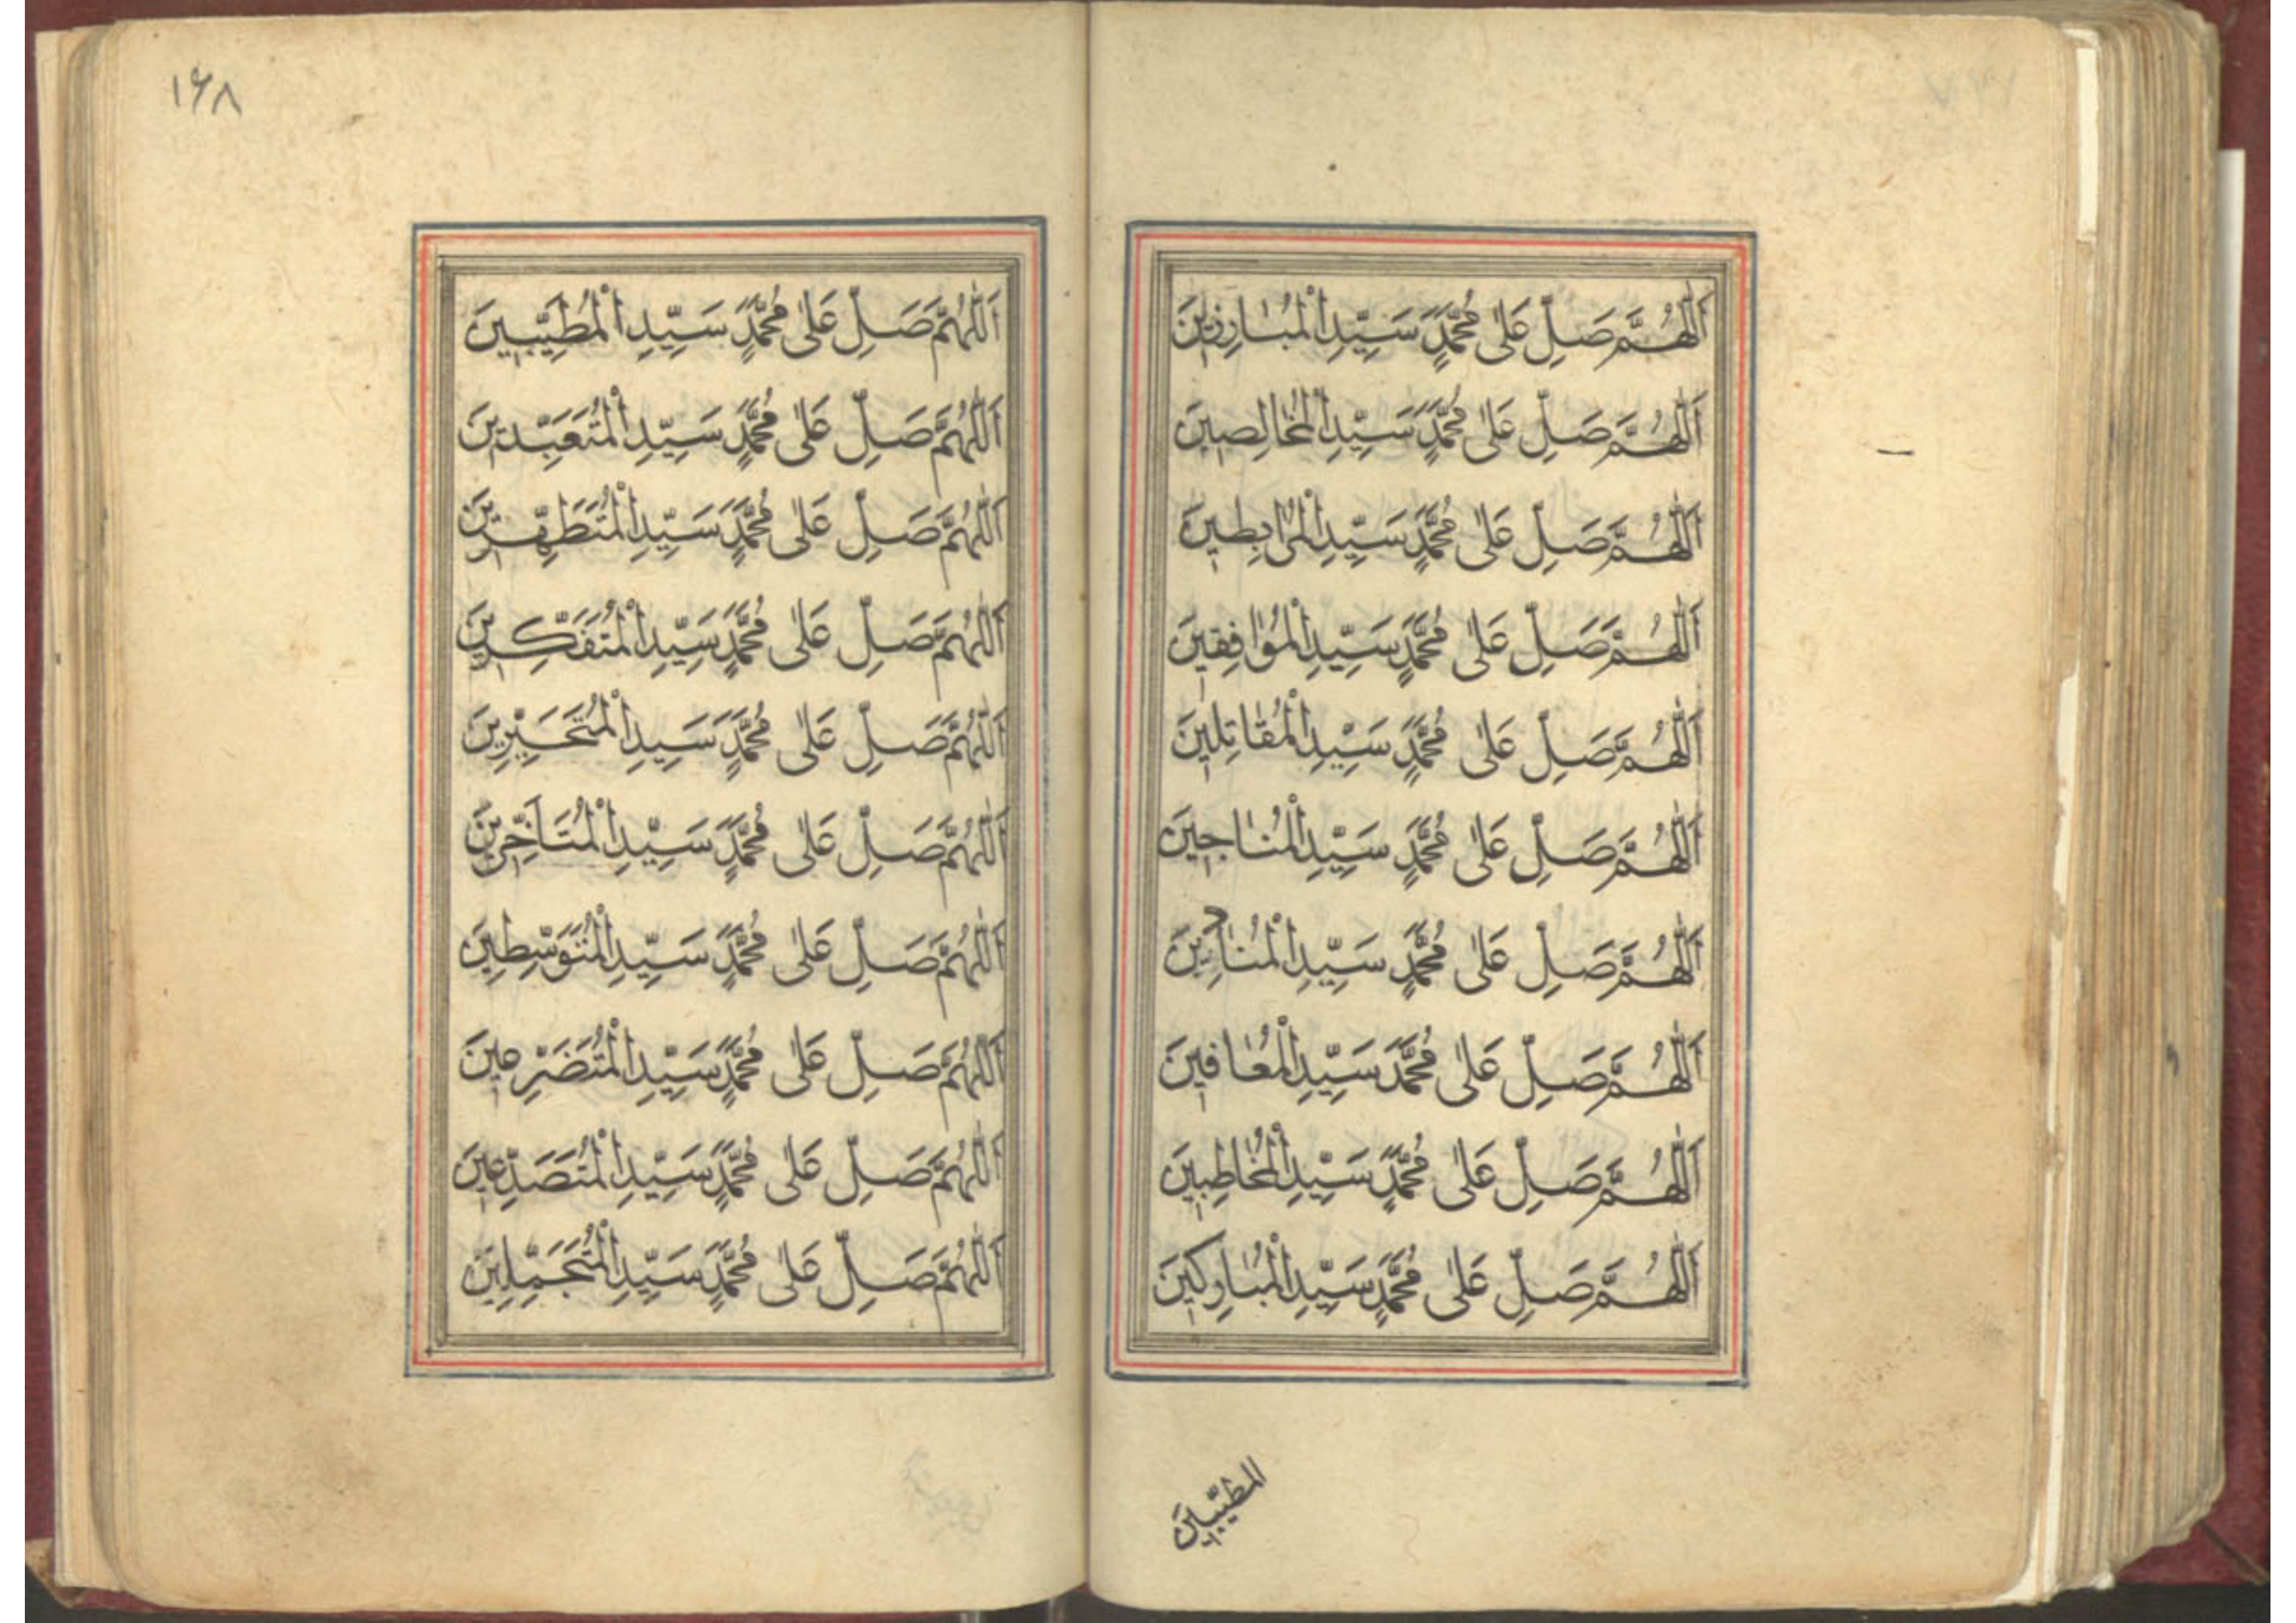 اَللّٰهُمَّ صَلِّ عَلٰى مُحَمَّدٍ سَيِّدِ الْمُبٰارِزِينَ
اَللّٰهُمَّ صَلِّ عَلٰى مُحَمَّدٍ سَيِّدِ الْمُخٰالِصِينَ
اَللّٰهُمَّ صَلِّ عَلٰى مُحَمَّدٍ سَيِّدِ الْمُرٰابِطِينَ
اَللّٰهُمَّ صَلِّ عَلٰى مُحَمَّدٍ سَيِّدِ الْمُوٰافِقِينَ
اَللّٰهُمَّ صَلِّ عَلٰى مُحَمَّدٍ سَيِّدِ الْمُقٰاتِلِينَ
اَللّٰهُمَّ صَلِّ عَلٰى مُحَمَّدٍ سَيِّدِ الْمُنٰاجِينَ
اَللّٰهُمَّ صَلِّ عَلٰى مُحَمَّدٍ سَيِّدِ الْمُنٰادِينَ
اَللّٰهُمَّ صَلِّ عَلٰى مُحَمَّدٍ سَيِّدِ الْمُعٰافِينَ
اَللّٰهُمَّ صَلِّ عَلٰى مُحَمَّدٍ سَيِّدِ الْمُخٰاطِبِينَ
اَللّٰهُمَّ صَلِّ عَلٰى مُحَمَّدٍ سَيِّدِ الْمُبٰارِكِينَ
المطيّبينَ
۱۶۸
اَللّٰهُمَّ صَلِّ عَلٰى مُحَمَّدٍ سَيِّدِ الْمُطَيِّبِينَ
اَللّٰهُمَّ صَلِّ عَلٰى مُحَمَّدٍ سَيِّدِ الْمُتَعَبِّدِينَ
اَللّٰهُمَّ صَلِّ عَلٰى مُحَمَّدٍ سَيِّدِ الْمُتَطَهِّرِينَ
اَللّٰهُمَّ صَلِّ عَلٰى مُحَمَّدٍ سَيِّدِ الْمُتَفَكِّرِينَ
اَللّٰهُمَّ صَلِّ عَلٰى مُحَمَّدٍ سَيِّدِ
اَللّٰهُمَّ صَلِّ عَلٰى مُحَمَّدٍ سَيِّدِ الْمُتَاَخِّرِينَ
اَللّٰهُمَّ صَلِّ عَلٰى مُحَمَّدٍ سَيِّدِ الْمُتَوَسِّطِينَ
اَللّٰهُمَّ صَلِّ عَلٰى مُحَمَّدٍ سَيِّدِ الْمُتَضَرِّعِينَ
اَللّٰهُمَّ صَلِّ عَلٰى مُحَمَّدٍ سَيِّدِ الْمُتَصَدِّعِينَ
اَللّٰهُمَّ صَلِّ عَلٰى مُحَمَّدٍ سَيِّدِ الْمُتَجَمِّلِينَ